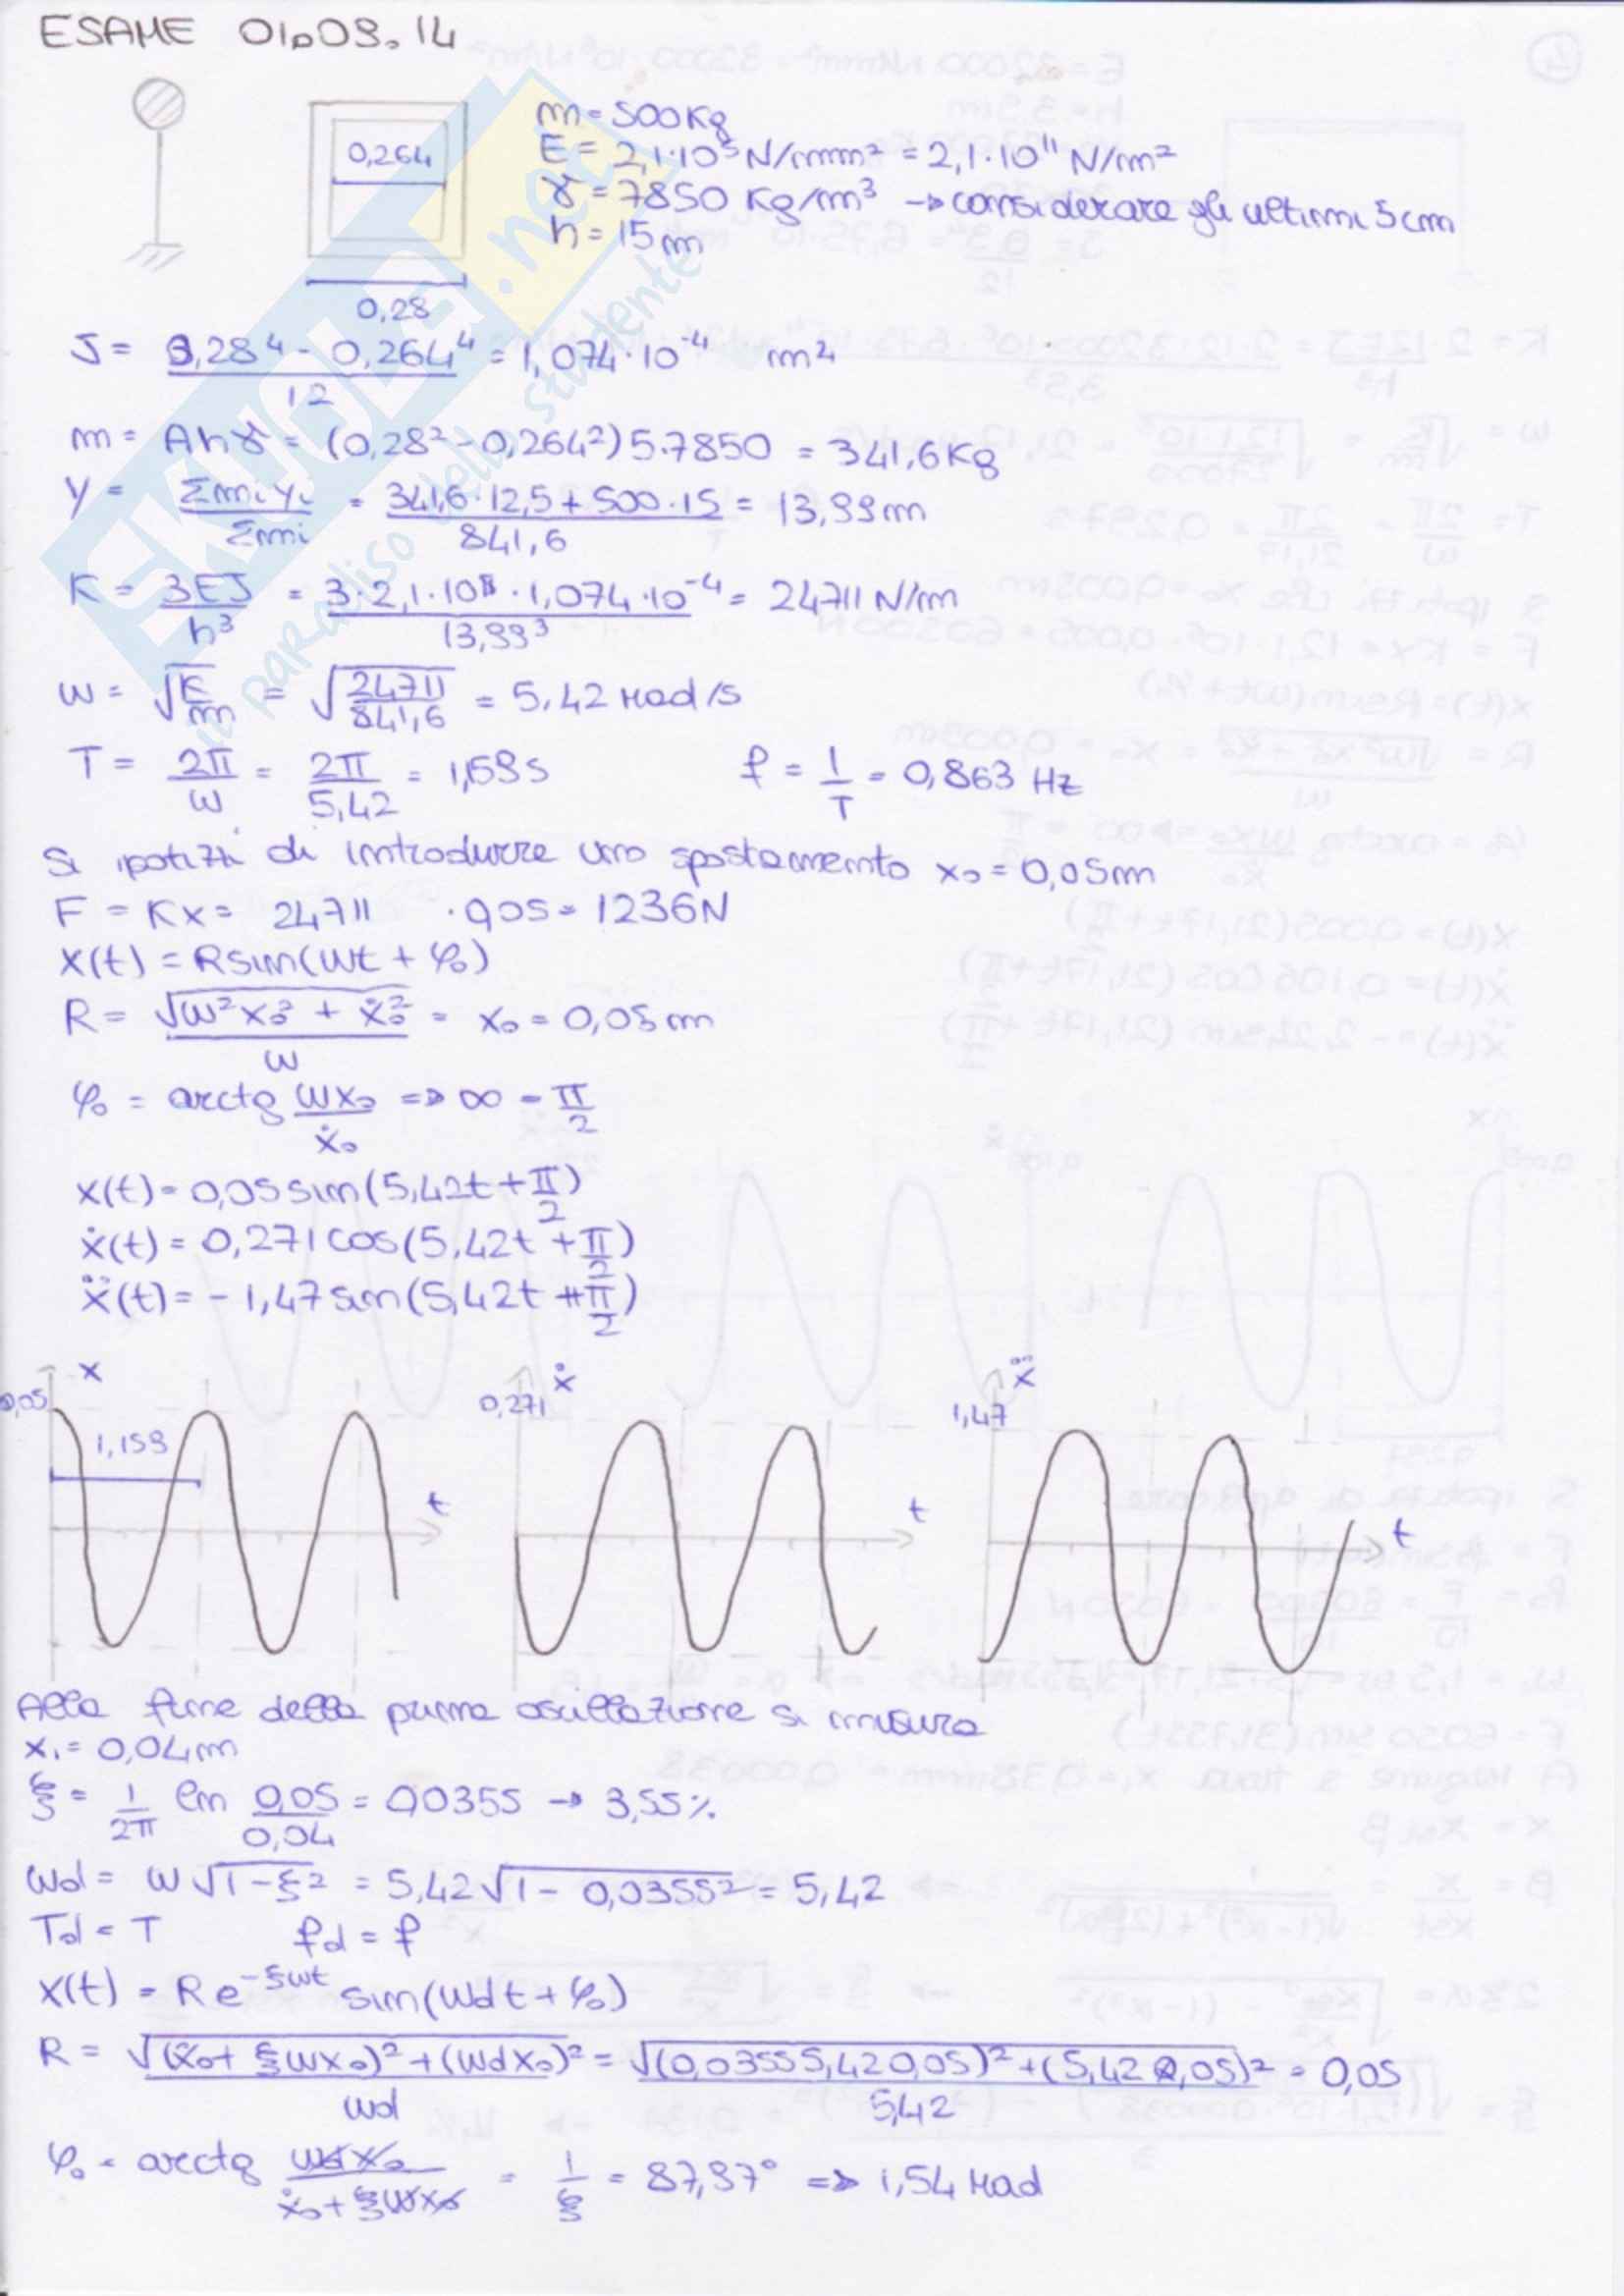 ESAME 01.09.14
0,264
0,28
m = 500 Kg
E = 2,1·10⁵ N/mm² = 2,1·10¹¹ N/m²
γ = 7850 Kg/m³ → considerare gli ultimi 5 cm
h = 15 m
J = 0,28⁴ - 0,264⁴ / 12 = 1,074·10⁻⁴ m⁴
m = Ahγ = (0,28² - 0,264²) 5·7850 = 341,6 Kg
Y = Σmiyi / Σmi = 341,6·12,5 + 500·15 / 841,6 = 13,99 m
K = 3EJ / h³ = 3·2,1·10¹¹·1,074·10⁻⁴ / 13,99³ = 24711 N/m
ω = √K/m = √24711/841,6 = 5,42 rad/s
T = 2π/ω = 2π/5,42 = 1,159 s f = 1/T = 0,863 Hz
Si ipotizzi di introdurre uno spostamento x₀ = 0,05 m
F = Kx = 24711 ·0,05 = 1236 N
x(t) = R sin(ωt + φ₀)
R = √ω²x₀² + ẋ₀² / ω = x₀ = 0,05 m
φ₀ = arctg ωx₀/ẋ₀ => ∞ = π/2
x(t) = 0,05 sin(5,42t + π/2)
ẋ(t) = 0,271 cos(5,42t + π/2)
ẍ(t) = - 1,47 sin(5,42t + π/2)
x
0,05
1,159
t
ẋ
0,271
t
ẍ
1,47
t
Alla fine della prima oscillazione si misura
x₁ = 0,04 m
ξ = 1/2π ln 0,05/0,04 = 0,0355 → 3,55%
ωd = ω√1-ξ² = 5,42√1 - 0,0355² = 5,42
Td = T fd = f
x(t) = R e^-ξωt sin(ωdt + φ₀)
R = √(ẋ₀ + ξωx₀)² + (ωdx₀)² / ωd = √(0,0355 5,42 0,05)² + (5,42 0,05)² / 5,42 = 0,05
φ₀ = arctg ωdx₀ / ẋ₀ + ξωx₀ = 1/ξ = 87,97° => 1,54 rad
SKUOLA.net
il paradiso dello studente